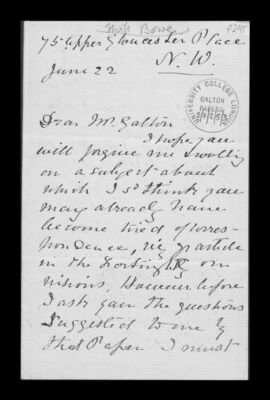 Miss Bowen
F245
75 Upper Gloucester Place
N.W.
June 22
UNIVERSITY COLLEGE LONDON
GALTON
PAPERS
Dear Mr. Galton
I hope you
will forgive me writing
on a subject about
which I sd think you
may already have
become tired of corres-
pondence, viz yr article
in the Fortnightly on
visions, However before
I ask you the questions
suggested to me by
that Paper I must